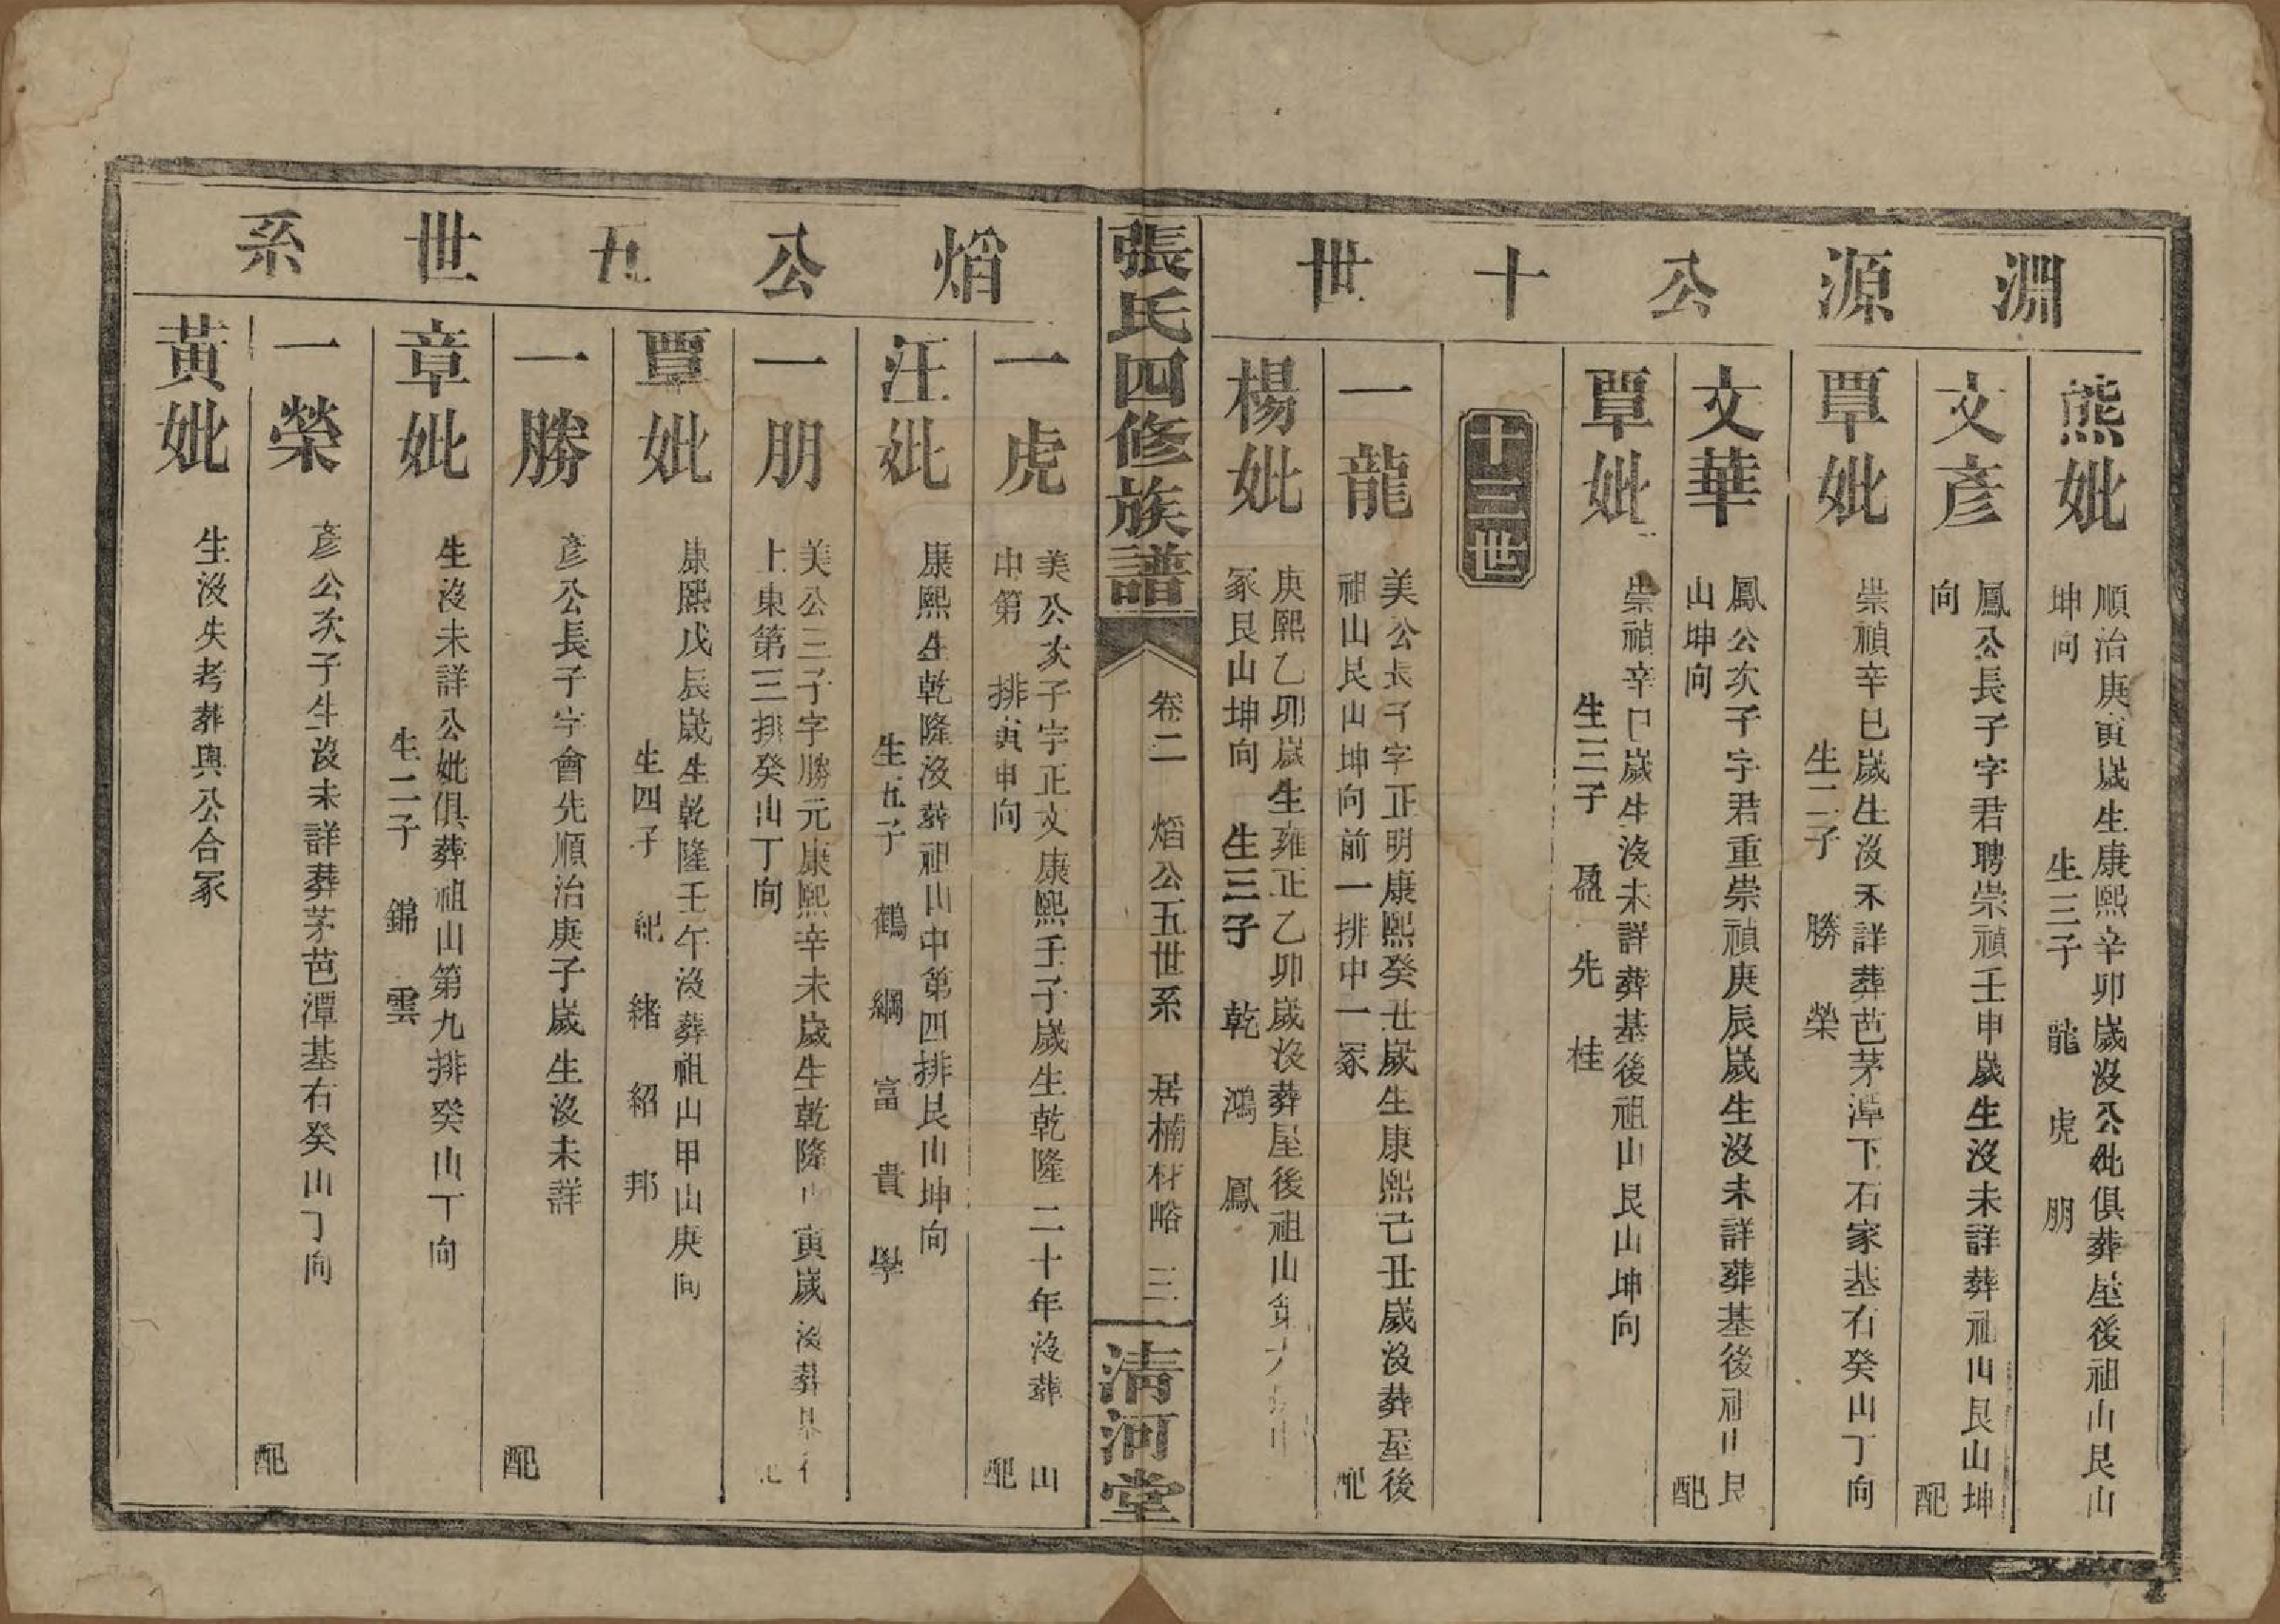 淵源公十世
熊妣
順治庚寅歲生康熙辛卯歲沒公妣俱葬屋後祖山艮山
坤向
生三子 龍 虎 朋
文彥
鳳公長子字君聘崇禎壬申歲生沒未詳葬祖山艮山坤
向
配
覃妣
崇禎辛巳歲生沒未詳葬芭茅潭下石家基右癸山丁向
生二子 勝 榮
文華
鳳公次子字君重崇禎庚辰歲生沒未詳葬基後祖山艮
山坤向
配
覃妣
崇禎辛巳歲生沒未詳葬基後祖山艮山坤向
生三子 盈 先 桂
十三世
一龍
美公長子字正明康熙癸丑歲生康熙己丑歲沒葬屋後
祖山艮山坤向前一排中一冢
配
楊妣
庚熙乙卯歲生雍正乙卯歲沒葬屋後祖山第六
冢艮山坤向
生三子 乾 鴻 鳳
張氏四修族譜
卷二 熖公五世系 居楠材峪 三
清河堂
熖公九世系
一虎
美公次子字正文康熙壬子歲生乾隆二十年沒葬 山
中第 排寅申向
配
汪妣
康熙生乾隆沒葬祖山中第四排艮山坤向
生五子 鶴 綱 富 貴 學
一朋
美公三子字勝元康熙辛未歲生乾隆 寅歲沒葬
上東第三排癸山丁向
覃妣
康熙戊辰歲生乾隆壬午沒葬祖山甲山庚向
生四子 紀 緒 紹 邦
一勝
彥公長子字會先順治庚子歲生沒未詳
配
章妣
生沒未詳公妣俱葬祖山第九排癸山丁向
生二子 錦 雲
一榮
彥公次子生沒未詳葬茅芭潭基右癸山丁向
配
黃妣
生沒失考葬與公合冢